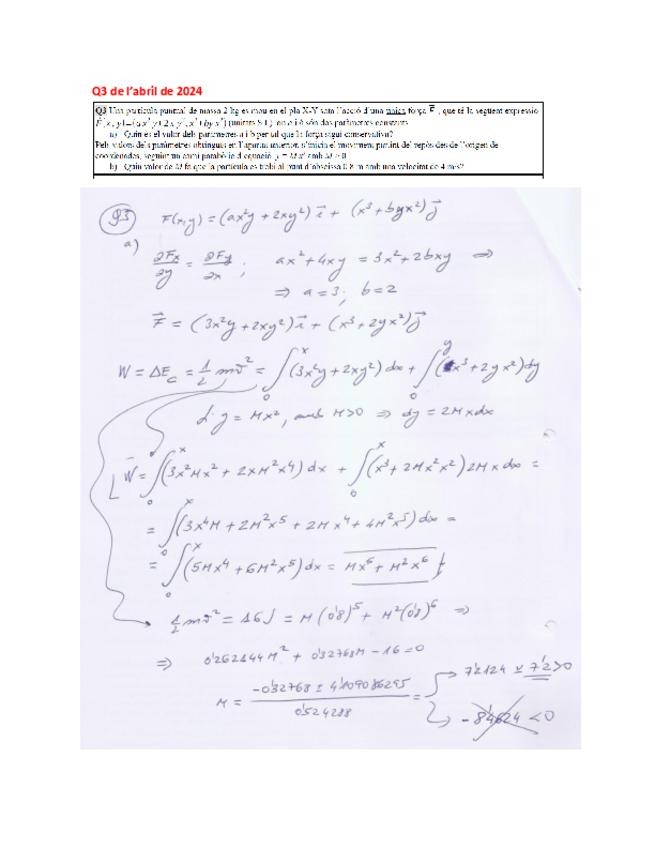 Q3 de l'abril de 2024
Q3 Una partícula puntual de massa 2 kg es mou en el pla X-Y sota l'acció d'una única força F⃗, que té la següent expressió
F(x, y)=(ax²y+2xy², x³+byx²) (unitats S.I.) on a i b són dos paràmetres constants.
a) Quin és el valor dels paràmetres a i b per tal que la força sigui conservativa?
Pels valors dels paràmetres obtinguts en l'apartat anterior, s'inicia el moviment partint del repòs des de l'origen de
coordenades, seguint un camí parabòlic d'equació y = Mx² amb M > 0
b) Quin valor de M fa que la partícula es trobi al punt d'abscissa 0.8 m amb una velocitat de 4 m/s?
Q3 F(x,y) = (ax²y + 2xy²) i⃗ + (x³ + byx²) j⃗
a)
∂Fx/∂y = ∂Fy/∂x ; ax² + 4xy = 3x² + 2bxy ⇒
⇒ a = 3; b = 2
F⃗ = (3x²y + 2xy²) i⃗ + (x³ + 2yx²) j⃗
W = ΔEc = 1/2 mv² = ∫₀ˣ (3x²y + 2xy²) dx + ∫₀ʸ (x³ + 2yx²) dy
y = Mx², amb M>0 ⇒ dy = 2Mxdx
W = ∫₀ˣ (3x²Mx² + 2xM²x⁴) dx + ∫₀ˣ (x³ + 2Mx²x²) 2Mx dx =
= ∫₀ˣ (3x⁴M + 2M²x⁵ + 2Mx⁴ + 4M²x⁵) dx =
= ∫₀ˣ (5Mx⁴ + 6M²x⁵) dx = Mx⁵ + M²x⁶
1/2 mv² = 16J = M(0'8)⁵ + M²(0'8)⁶ ⇒
⇒ 0'262144M² + 0'32768M − 16 = 0
M = (−0'32768 ± 4'109086295) / 0'524288 = 7'2124 ≃ 7'2 > 0
−8'4624 < 0